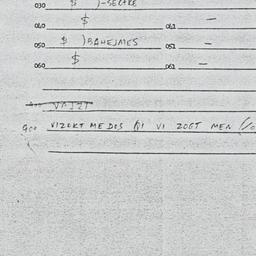 030 $ )-SECTRE
040 $ 041 —
050 $ )BAHEJMES 051 —
060 $ 061 —
VAJZI
900 VIZOKT ME DOS KI VI ZOET MEN